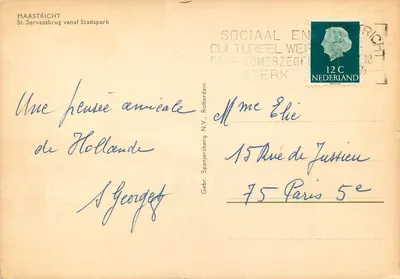 MAASTRICHT
St. Servaasbrug vanaf Stadspark
SOCIAAL EN
CULTUREEL
STERK
12 C
NEDERLAND
Gebr. Spanjersberg N.V., Rotterdam
Une pensée amicale
de Hollande
S Georges
Mme Elie
15 Rue de Jussieu
75 Paris 5e